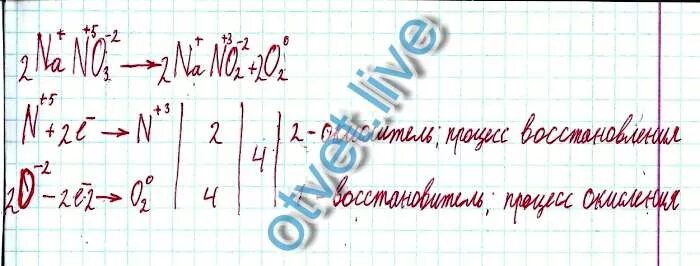 2Na⁺N⁺⁵O₃⁻² → 2Na⁺N⁺³O₂⁻² + 2O₂⁰
N⁺⁵ + 2e⁻ → N⁺³ | 2 | 4 | 2 - процесс восстановления
2O⁻² - 2e⁻·2 → O₂⁰ | 4 | восстановитель; процесс окисления
otvet.live